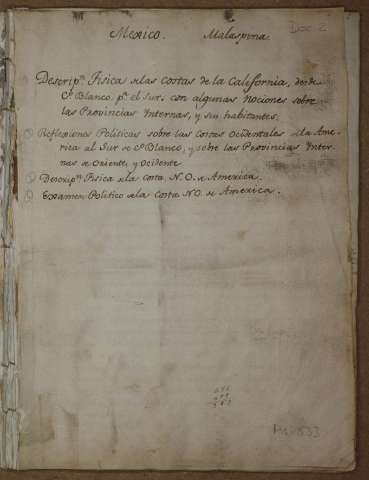 Mexico. Malaspina. Doc 2
Descripn. Fisica de las Costas de la California, desde
Co. Blanco pa. el Sur. con algunas nociones sobre
las Provincias Internas, y sus habitantes.
Reflexiones Politicas sobre las Costas Ocidentales de la Ame-
rica al Sur de Co. Blanco, y sobre las Provincias Inter-
nas de Oriente, y Ocidente
Descripn. Fisica de la Costa N.O. de America.
Examen Politico de la Costa N.O. de America.